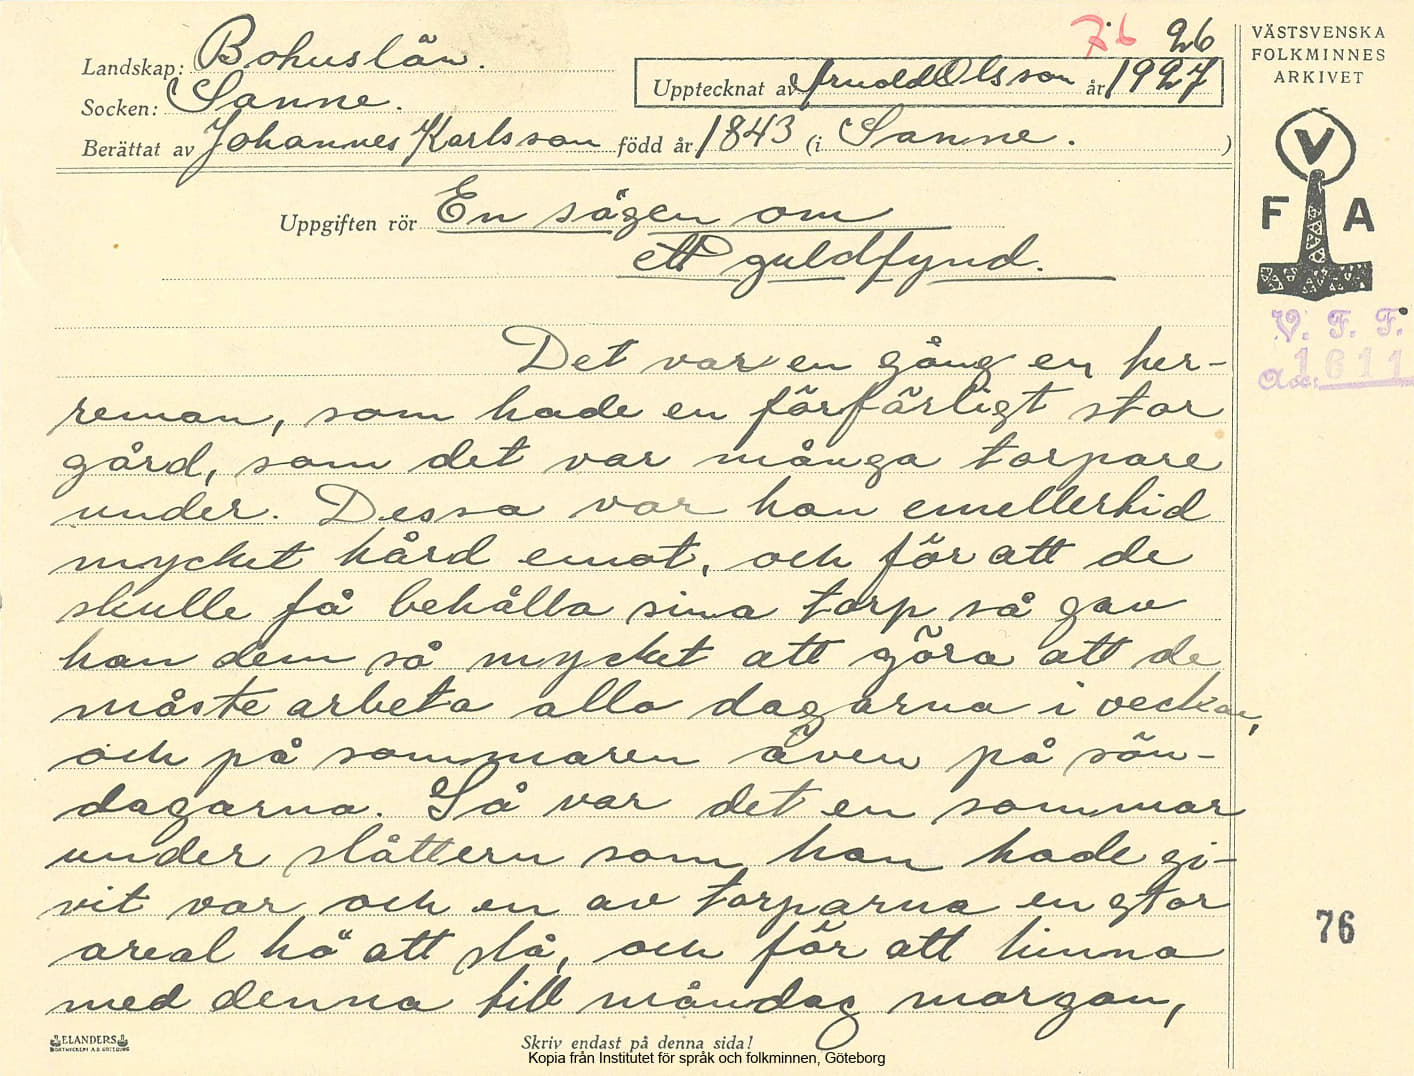 76 26
VÄSTSVENSKA
FOLKMINNES
ARKIVET
Landskap: Bohuslän.
Upptecknat av Arnold Olsson år 1927
Socken: Sanne.
Berättat av Johannes Karlsson född år 1843 (i Sanne. )
V
F A
Uppgiften rör En sägen om
ett guldfynd.
V. F. F.
Acc: 1611
Det var en gång en her-
reman, som hade en förfärligt stor
gård, som det var många torpare
under. Dessa var han emellertid
mycket hård emot, och för att de
skulle få behålla sina torp så gav
han dem så mycket att göra att de
måste arbeta alla dagarna i veckan,
och på sommaren även på sön-
dagarna. Så var det en sommar
under slåttern som han hade gi-
vit var och en av torparna en stor
areal hö att slå, och för att hinna
med denna till måndag morgon,
76
ELANDERS
Skriv endast på denna sida!
Kopia från Institutet för språk och folkminnen, Göteborg